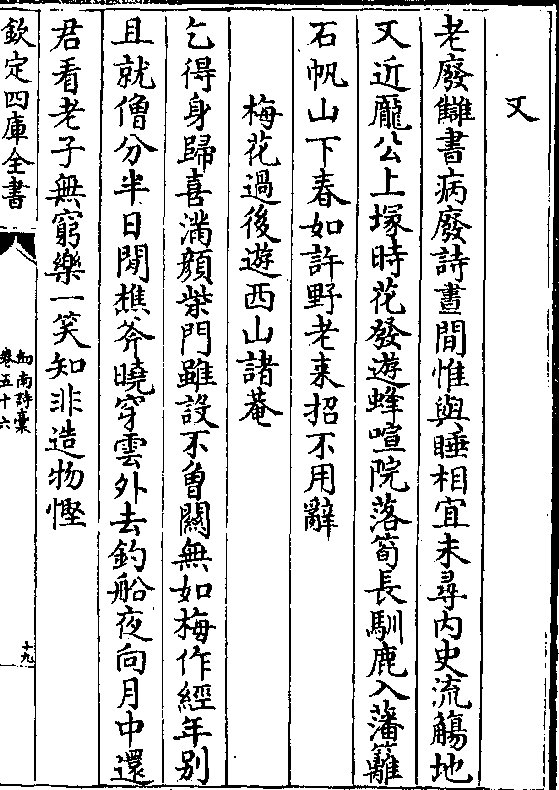 又
老廢讎書病廢詩晝間惟與睡相宜未尋内史流觴地
又近龐公上塚時花發遊蜂喧院落筍長馴鹿入藩籬
石帆山下春如許野老来招不用辭
梅花過後遊西山諸菴
乞得身歸喜滿顔柴門雖設不曾關無如梅作經年别
且就僧分半日閒樵斧曉穿雲外去釣船夜向月中還
君看老子無窮樂一笑知非造物慳
欽定四庫全書
劍南詩稾
卷五十六
十九